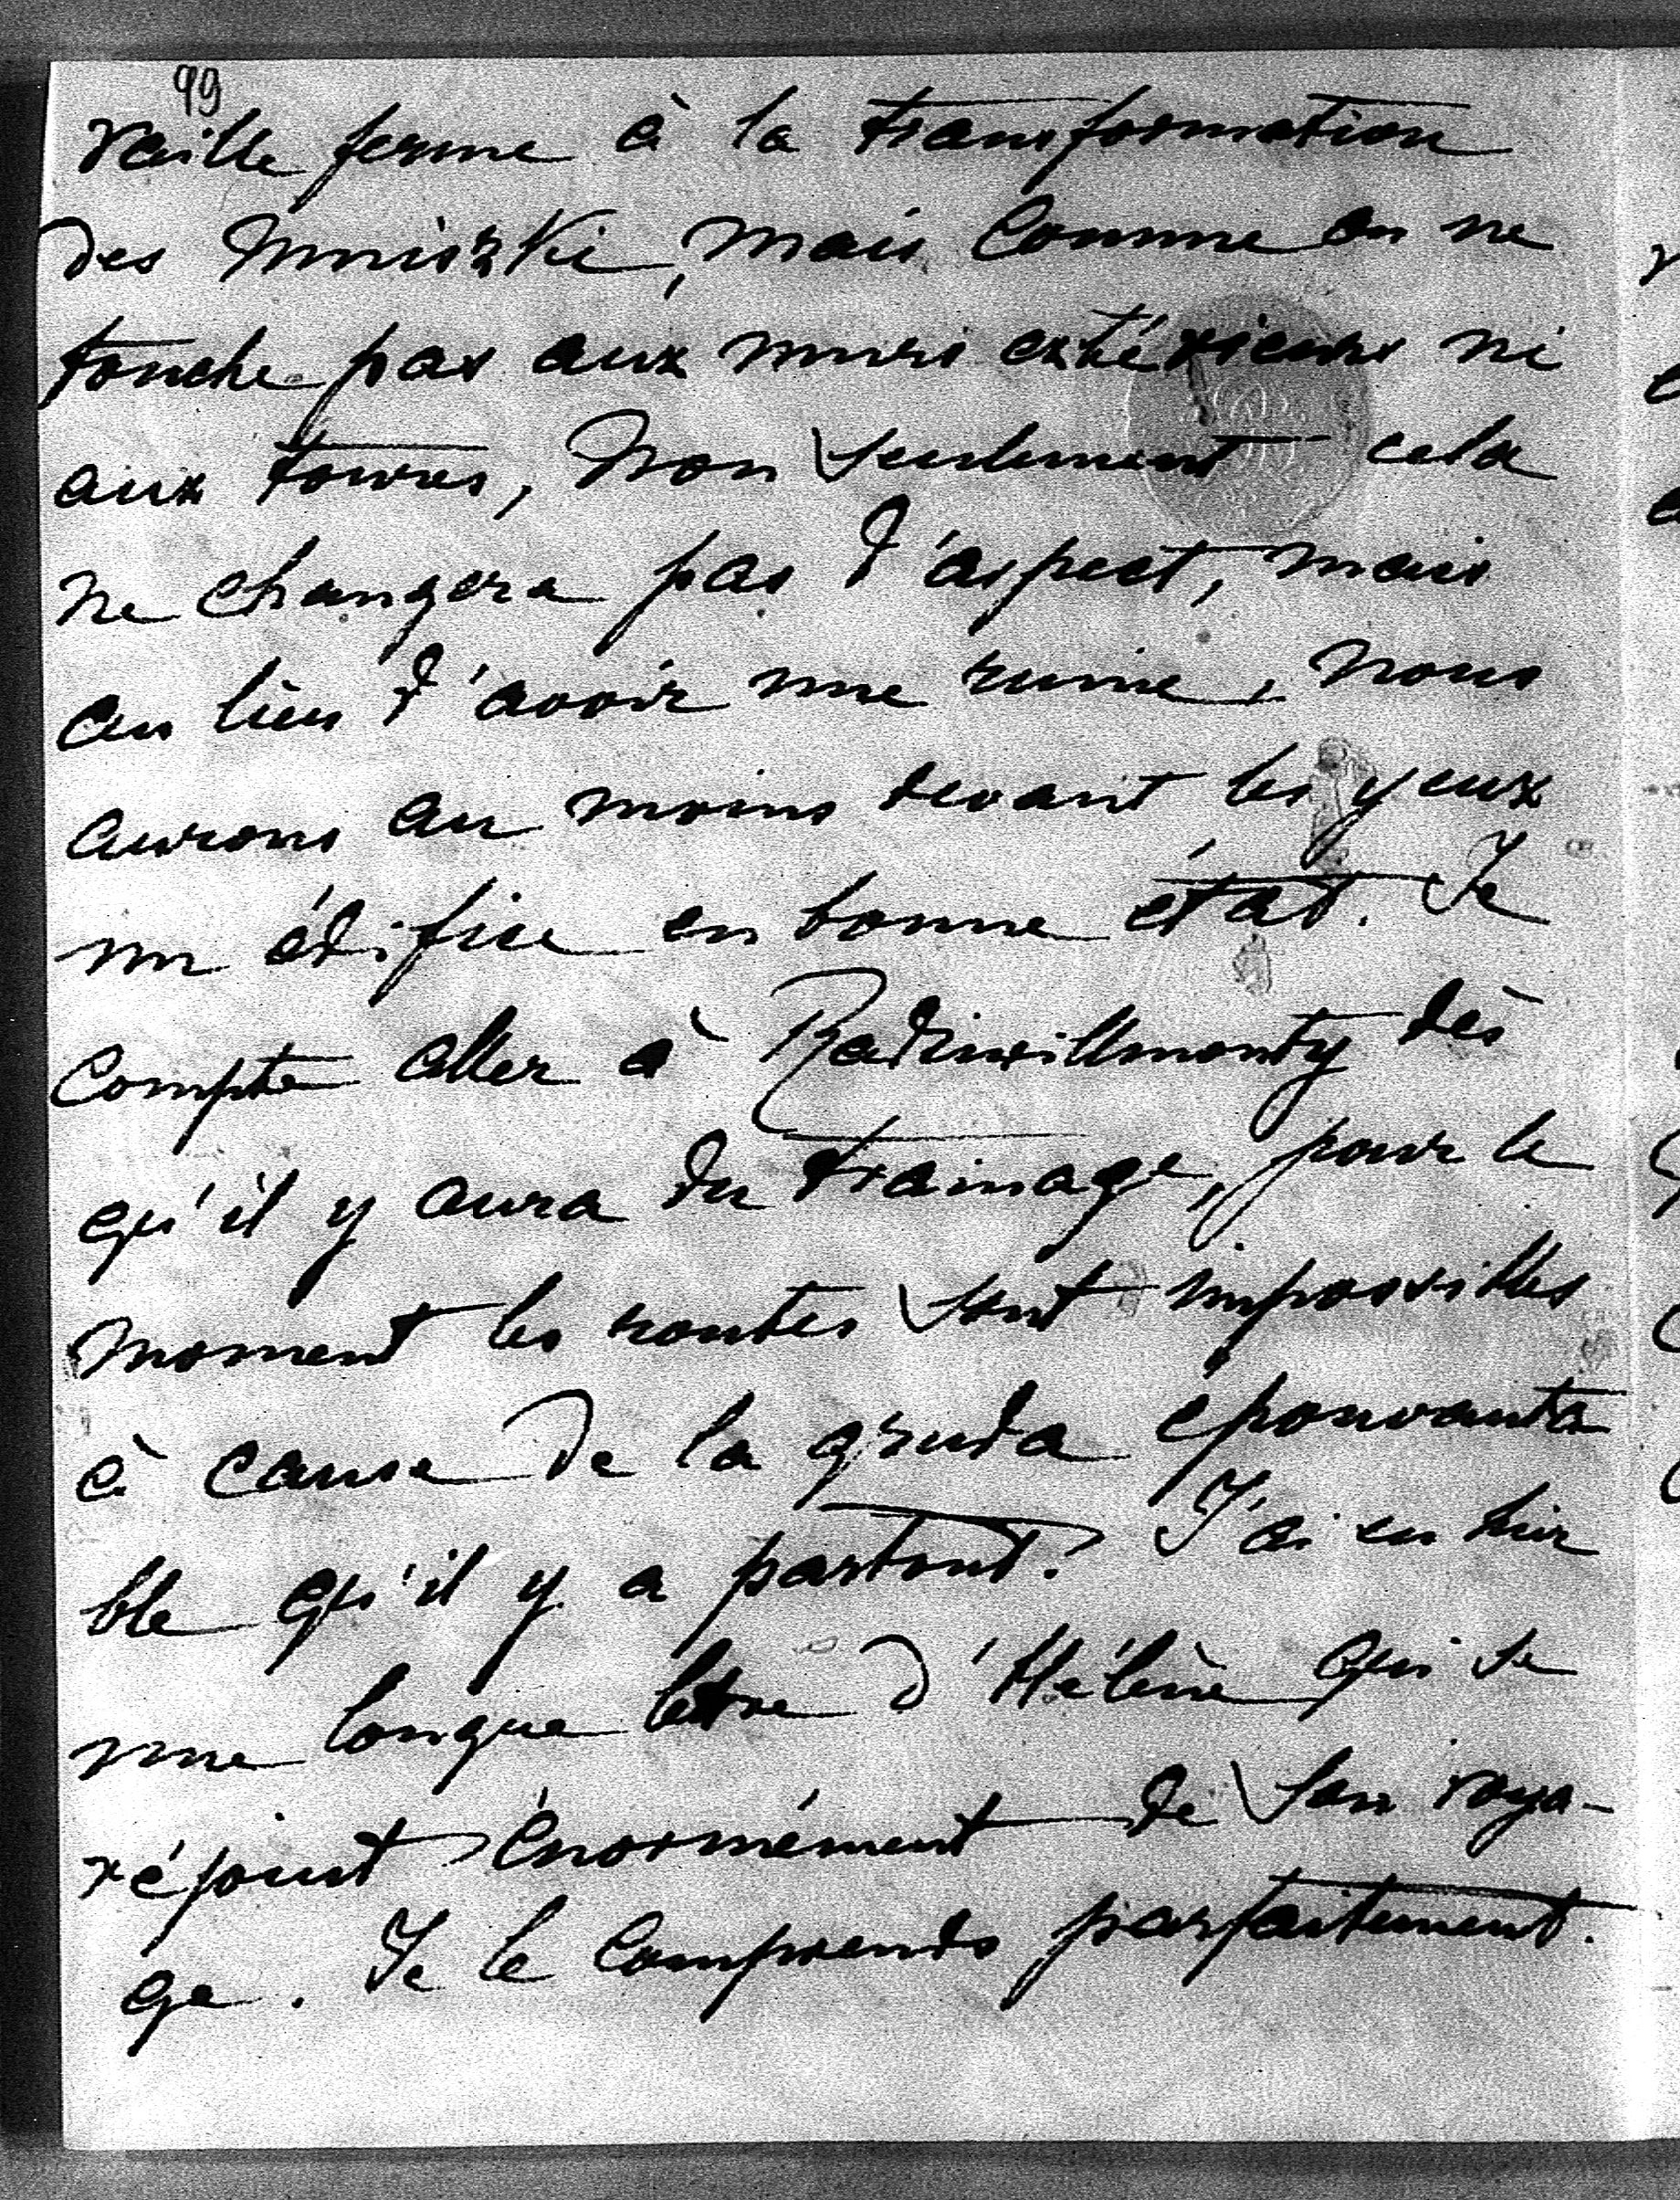 99
vaille ferme à la transformation
des Mniszki, mais comme on ne
touche pas aux murs extérieurs ni
aux tours, non seulement cela
ne changera pas d'aspect, mais
au lieu d'avoir une ruine, nous
aurons au moins devant les yeux
un édifice en bonne état. Je
compte aller à Radziwillmonty dès
qu'il y aura du trainage, pour le
moment les routes sont impossibles
à cause de la gruda épouvanta
ble qu'il y a partout. J'ai eu hier
une longue lettre d'Hélène qui se
réjouit énormément de son voya-
ge. Je le comprends parfaitement.